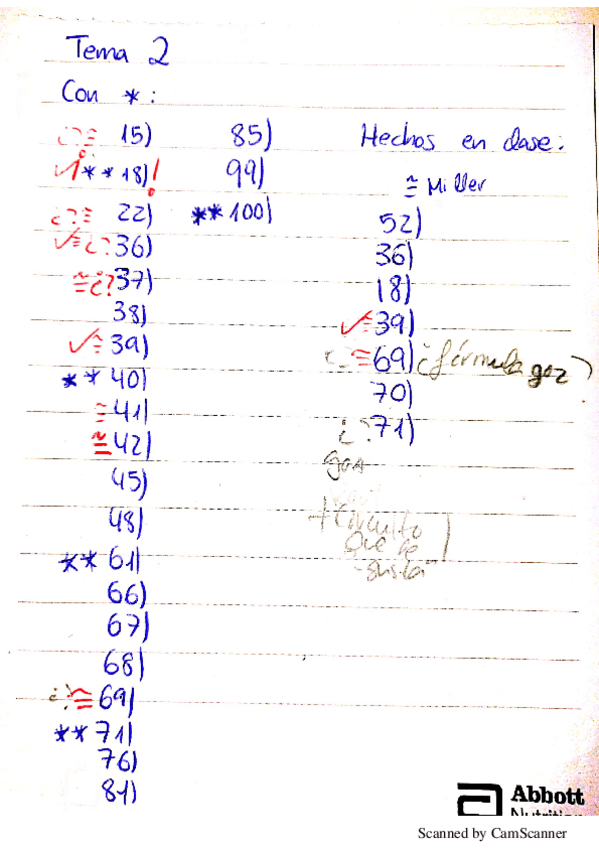 Tema 2
Con *:
¿?≅ 15)
✓¡**18)!
¿?≅ 22)
✓≅¿?36)
≅¿?37)
38)
✓≅39)
**40)
≅41)
≅42)
45)
48)
**61)
66)
67)
68)
¿?≅69)
**71)
76)
81)
85)
99)
**100)
Hechos en clase:
≅ Miller
52)
36)
18)
✓≅39)
≅69) ¿fórmula gaz
70)
¿?71)
gas
que le
Abbott
Nutrition
Scanned by CamScanner